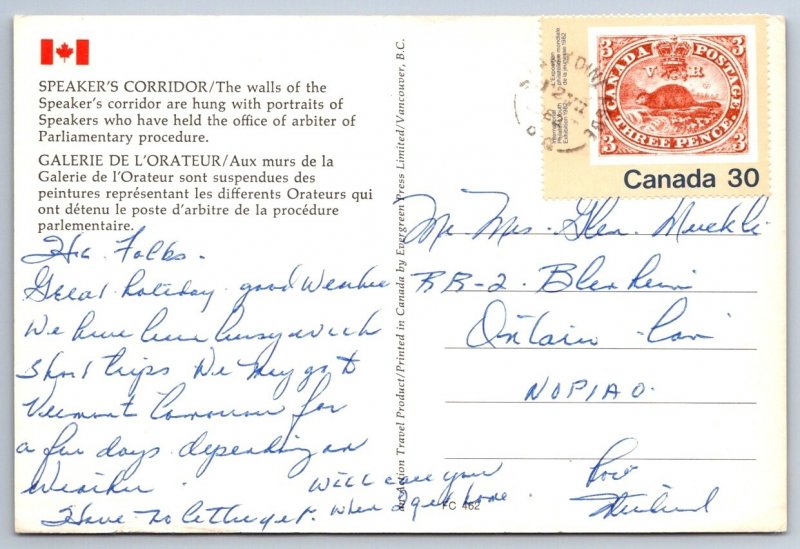 SPEAKER'S CORRIDOR/The walls of the
Speaker's corridor are hung with portraits of
Speakers who have held the office of arbiter of
Parliamentary procedure.
GALERIE DE L'ORATEUR/Aux murs de la
Galerie de l'Orateur sont suspendues des
peintures représentant les differents Orateurs qui
ont détenu le poste d'arbitre de la procédure
parlementaire.
Folks.
Great holiday good Weather
We have been busy with
short trips We may go to
Vermont tomorrow for
a few days depending on
Weather.
Will call you
when I get home.
Have no let
An Action Travel Product/Printed in Canada by Evergreen Press Limited/Vancouver, B.C.
PC 462
International
Philatelic Youth
Exhibition 1982
L'Exposition
philatélique mondiale
de la jeunesse 1982
3 CANADA POSTAGE 3
V R
3 THREE PENCE 3
Canada 30
Mr. Mrs. Glen
RR-2. Blenheim
Ontario. Can
NOPIAO.